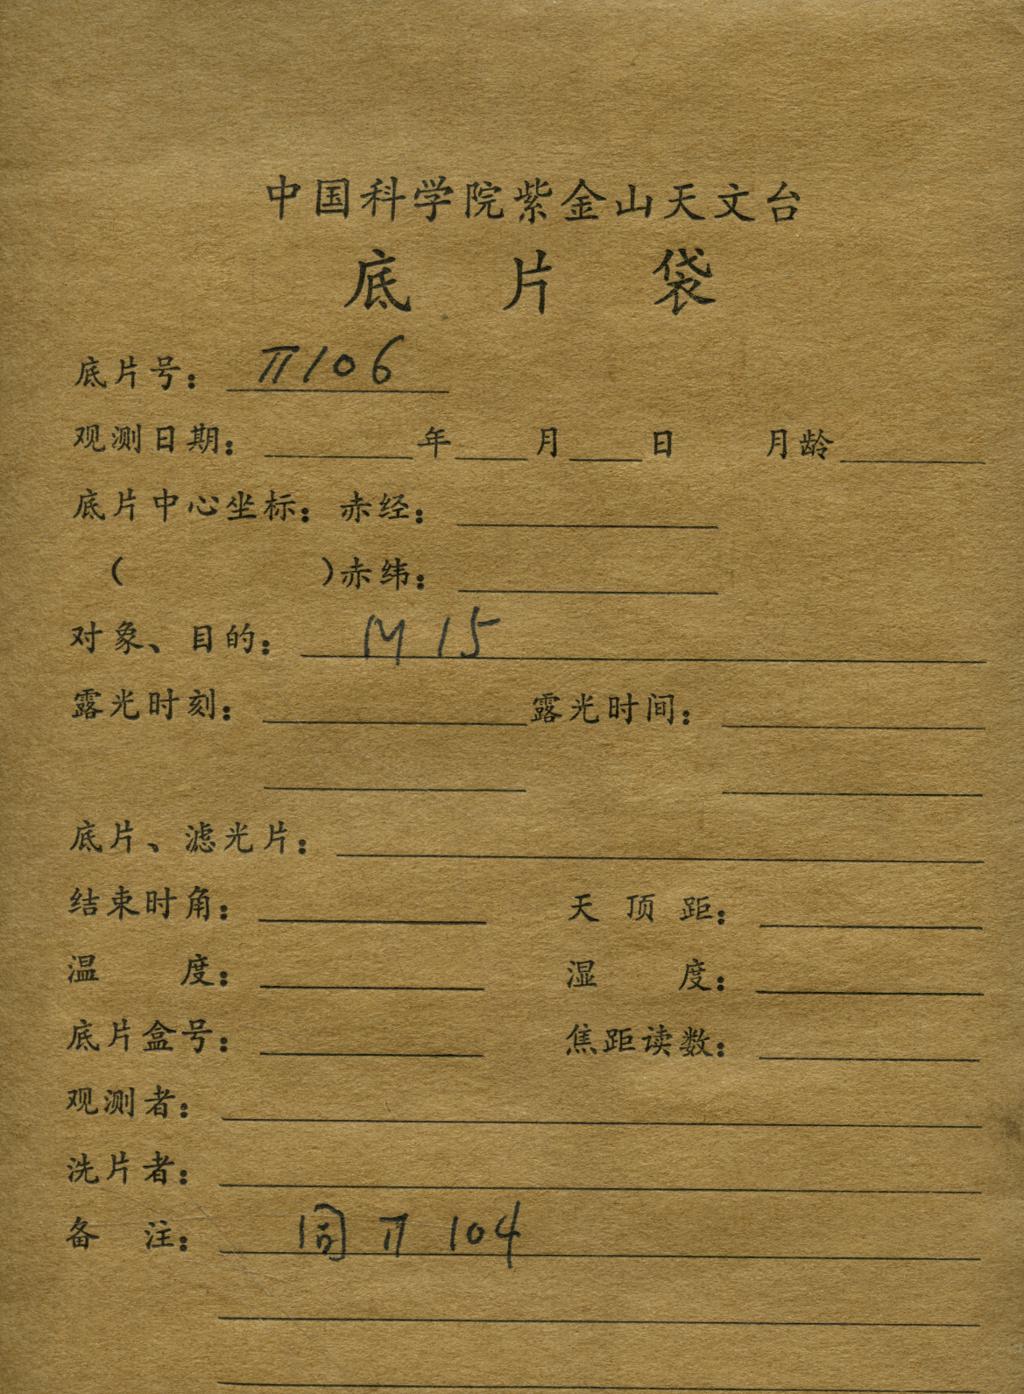 中国科学院紫金山天文台
底片袋
底片号：π106
观测日期：年月日 月龄
底片中心坐标：赤经：
（ ）赤纬：
对象、目的：M15
露光时刻： 露光时间：
底片、滤光片：
结束时角： 天顶距：
温度： 湿度：
底片盒号： 焦距读数：
观测者：
洗片者：
备注：同π104